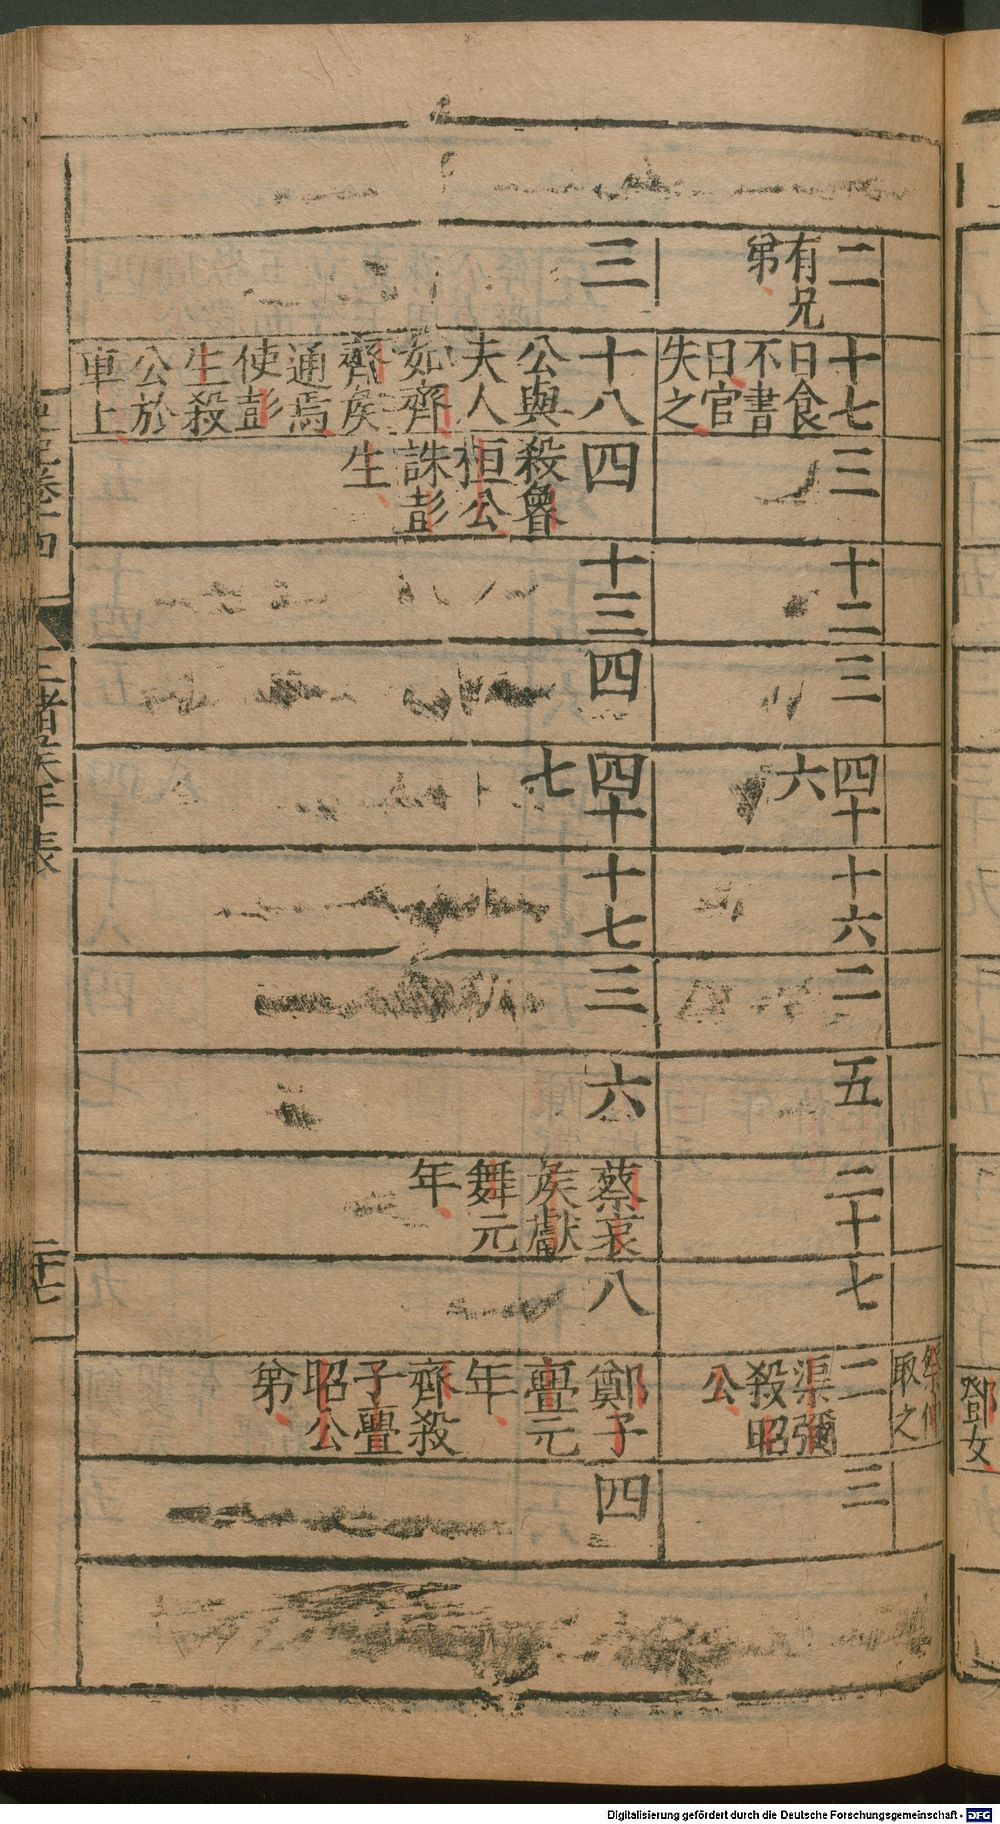 鄧女
祭仲
取之
二
有兄
弟
十七
日食
不書
日官
失之
三
十二
三
四十
六
十六
二
五
二十
七
二
渠彌
殺昭
公
三
三
十八
公與
夫人
如齊
齊侯
通焉
使彭
生殺
公於
車上
四
殺魯
桓公
誅彭
生
十三
四
四十
七
十七
三
六
蔡哀
侯獻
舞元
年
八
鄭子
亹元
年
齊殺
子亹
昭公
弟
四
史記卷十四
諸矦年表
二十七
Digitalisierung gefördert durch die Deutsche Forschungsgemeinschaft - DFG